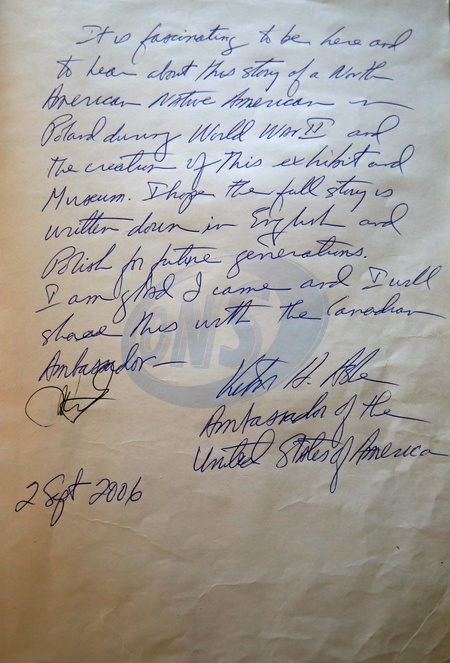 It is fascinating to be here and
to hear about this story of a North
American Native American in
Poland during World War II and
the creation of this exhibit and
Museum. I hope the full story is
written down in English and
Polish for future generations.
I am glad I came and I will
share this with the Canadian
Ambassador
Victor H. Ashe
Ambassador of the
United States of America
2 Sept 2006
DNS